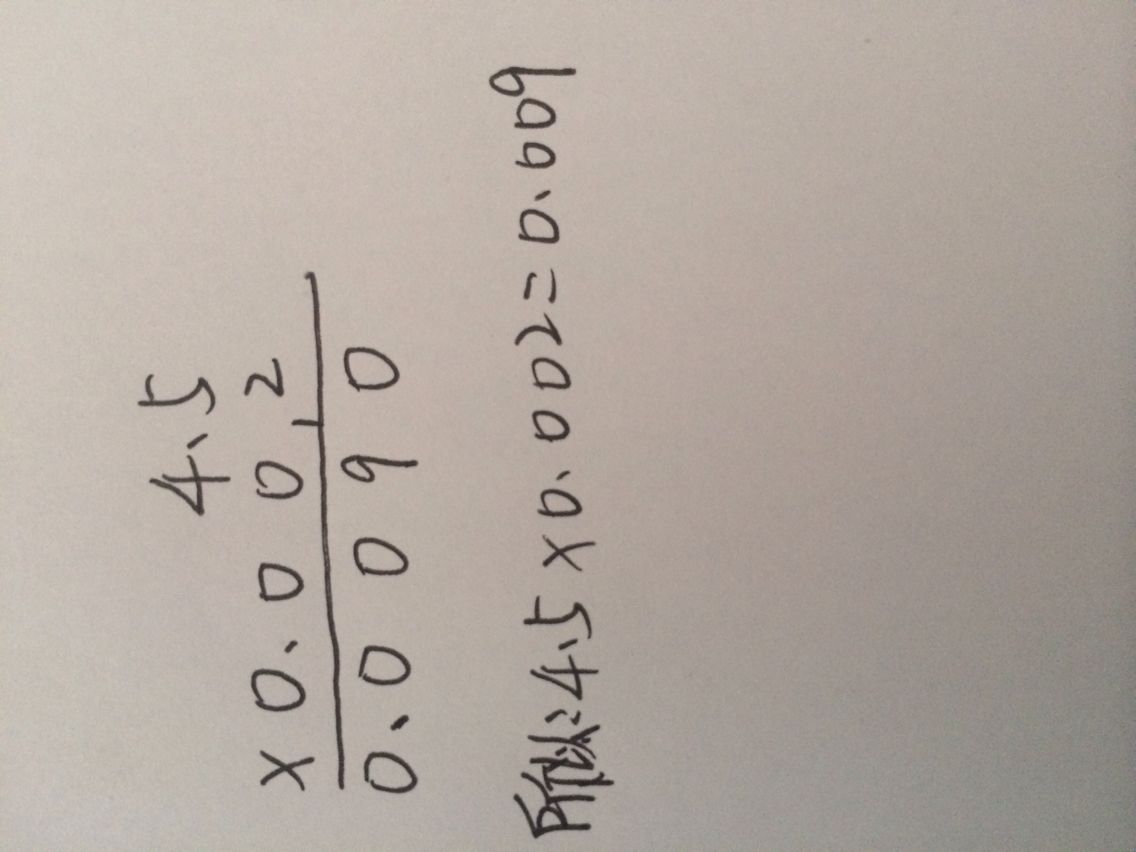 4.5
×0.002
1
0.0090
所以:4.5×0.002=0.009